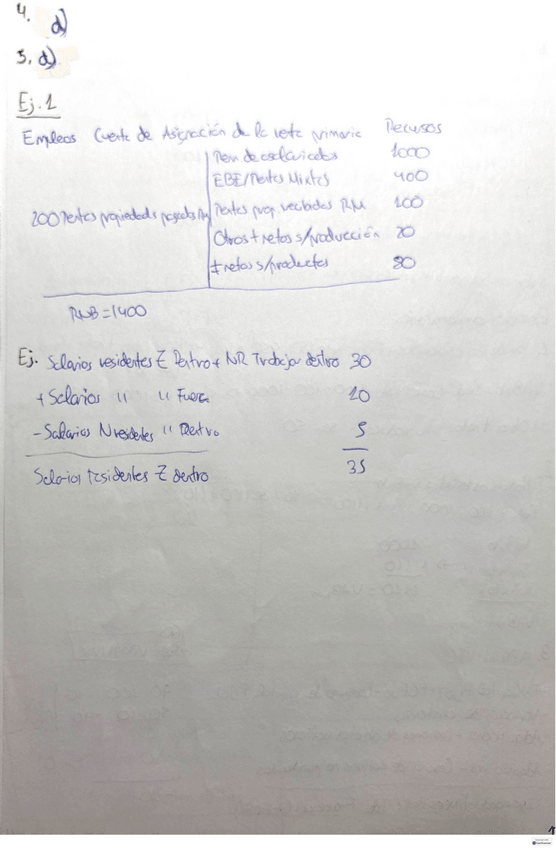 4. d)
5. d)
Ej. 1
Empleos Cuenta de Asignación de la renta primaria Recursos
Rem de asalariados 1000
EBE/Rentas Mixtas 400
200 Rentas propiedad pagadas RM Rentas prop. recibidas RM 100
Otros + netos s/producción 20
± netos s/productos 80
RNB = 1400
Ej. Salarios residentes Z Dentro + NR Trabajar dentro 30
+ Salarios " " Fuera 10
- Salarios Nresidentes " Dentro 5
Salarios residentes Z dentro 35